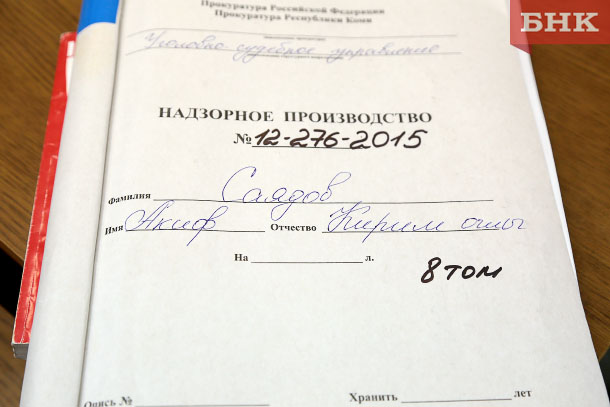 Прокуратура Российской Федерации
БНК
Прокуратура Республики Коми
Уголовно-судебное управление
НАДЗОРНОЕ ПРОИЗВОДСТВО
№ 12-276-2015
Фамилия Саядов
Имя Акиф Отчество Кирим оглы
На л.
8 том
Опись № Хранить лет